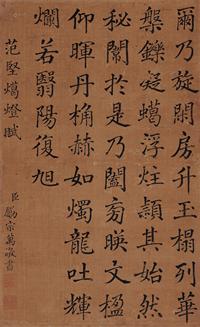 爾乃旋閑房升玉榻列華
槃鑠凝蠟浮炷穎其始然
秘闈於是乃闔爾暎文楹
仰暉丹桷赫如燭龍吐輝
爛若翳陽復旭
范堅蠟燈賦
臣勵宗萬敬書